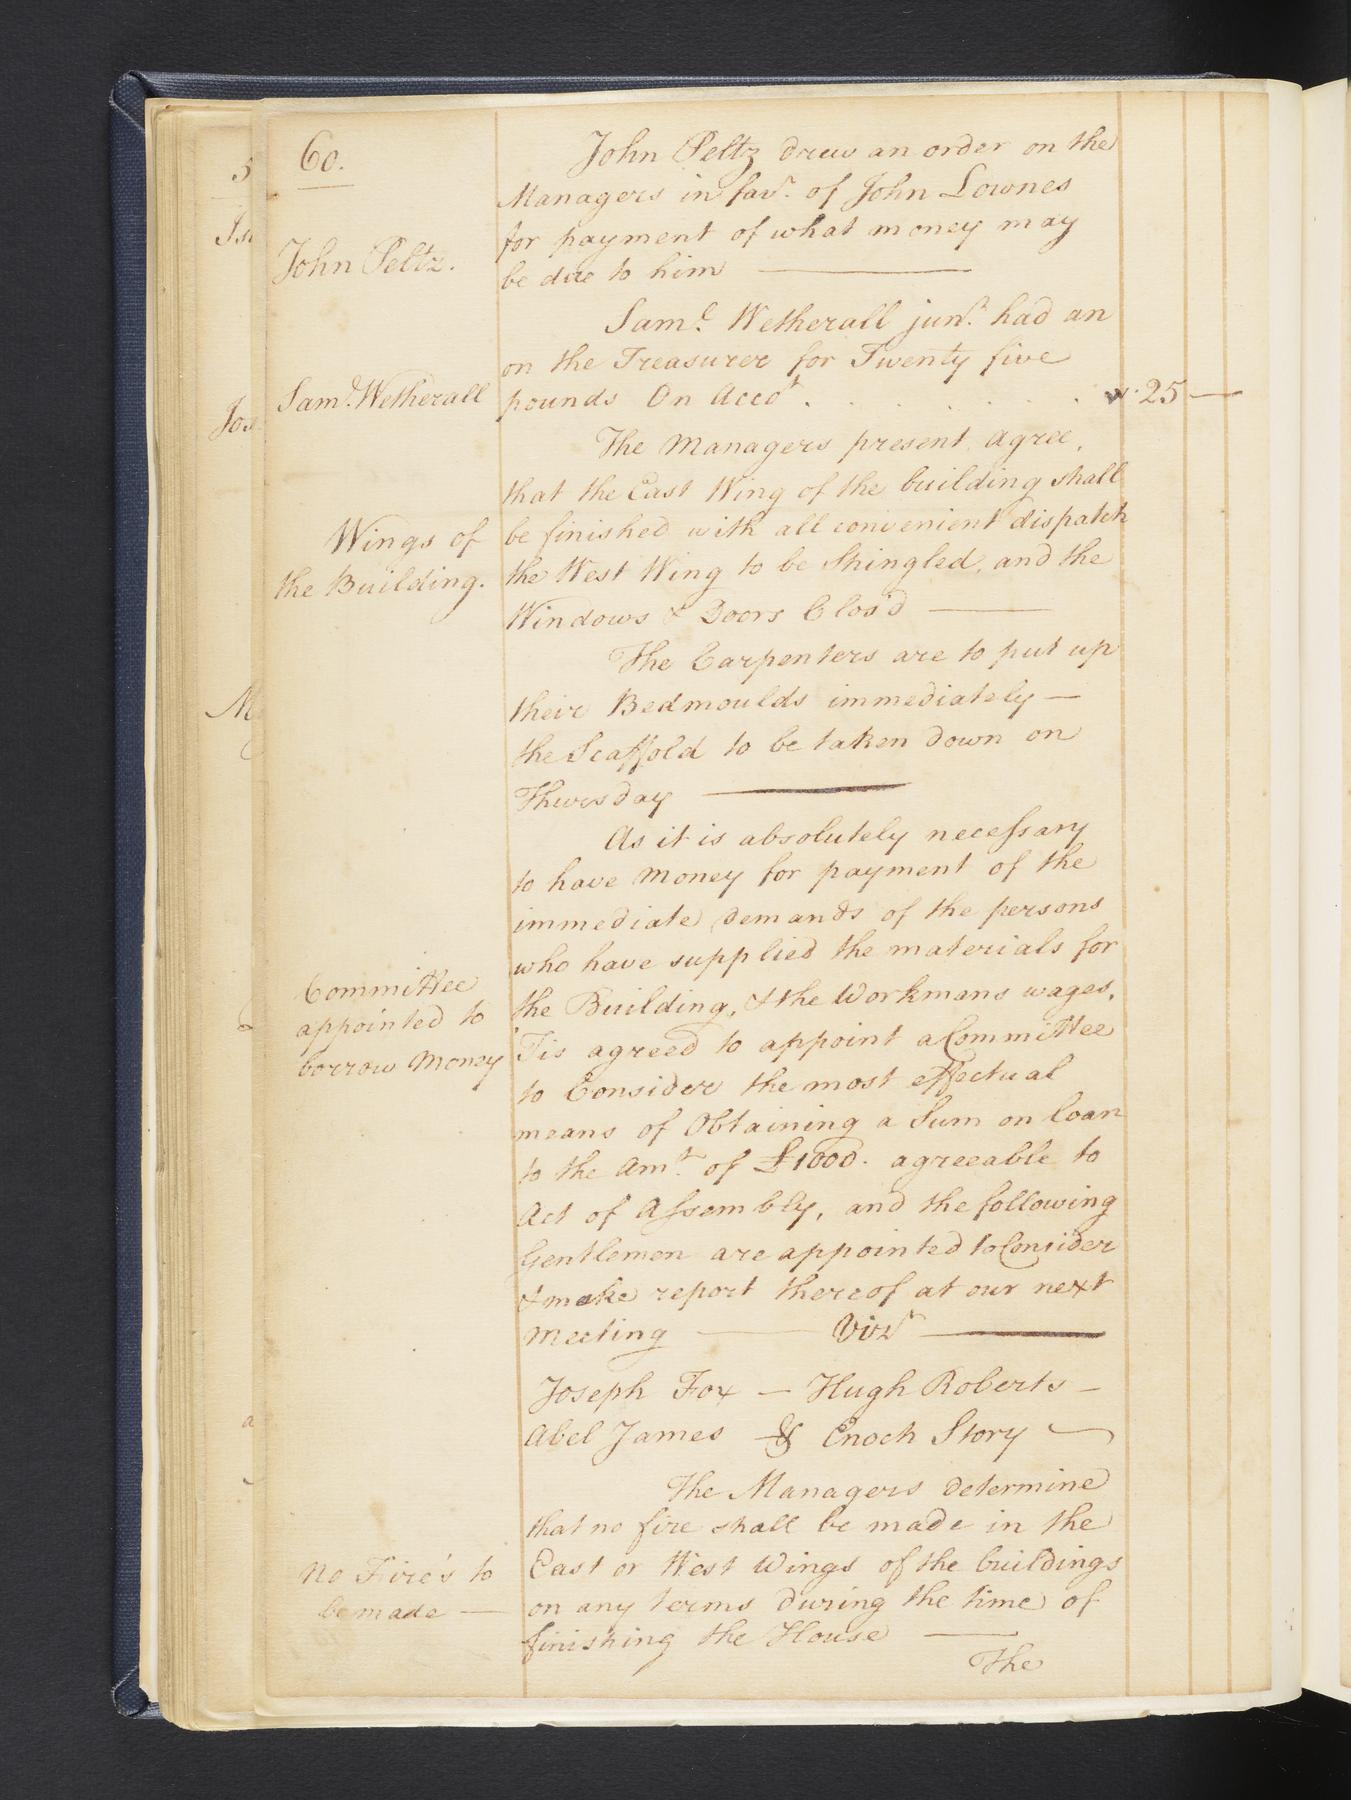 60.
John Peltz drew an order on the
Managers in favr. of John Lownes
for payment of what money may
John Peltz.
be due to him
Saml. Wetherall junr. had an
on the Treasurer for Twenty five
Saml. Wetherall
pounds On Accot. 25
The Managers present agree,
that the East Wing of the building shall
Wings of
be finished with all convenient dispatch
the Building.
the West Wing to be Shingled, and the
Windows & Doors Clos'd
The Carpenters are to put up
their Bedmoulds immediately —
the Scaffold to be taken down on
Thursday
As it is absolutely necessary
to have money for payment of the
immediate demands of the persons
who have supplied the materials for
Committee
appointed to
borrow Money
the Building, & the Workmans wages,
'Tis agreed to appoint a Committee
to Consider the most effectual
means of Obtaining a Sum on loan
to the Amt. of £1000. agreeable to
Act of Assembly, and the following
Gentlemen are appointed to Consider
& make report thereof at our next
Meeting — Vizt —
Joseph Fox — Hugh Roberts —
Abel James & Enoch Story
The Managers determine
that no fire shall be made in the
No Fire's to
be made —
East or West Wings of the buildings
on any terms during the time of
finishing the House —
The
5
Jos
M
a